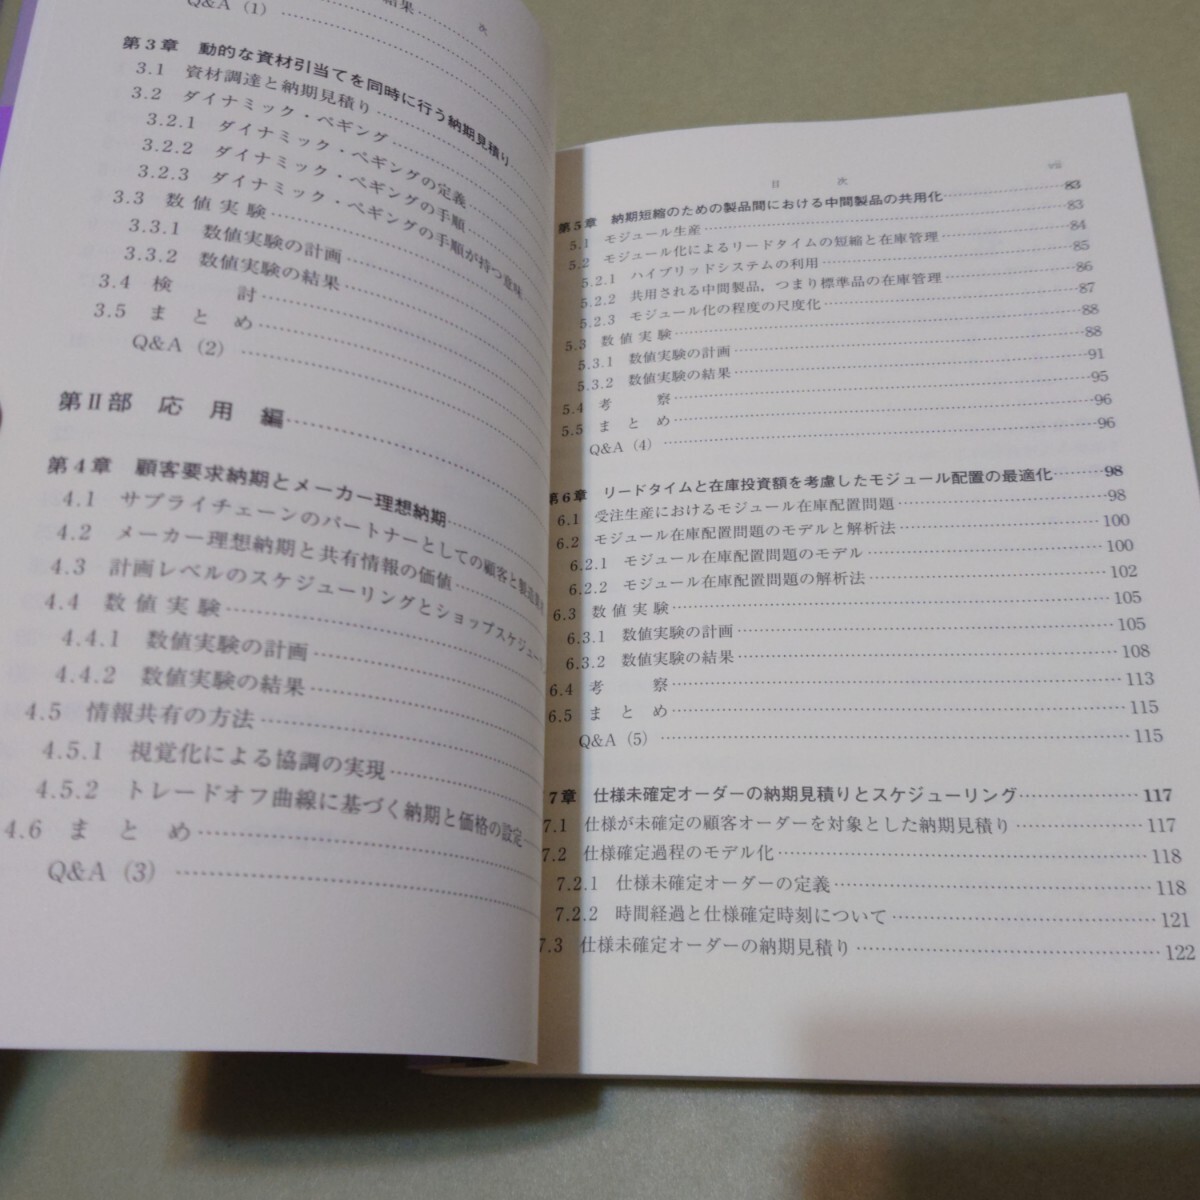 結果
Q&A（1）
次
第3章　動的な資材引当てを同時に行う納期見積り
3.1　資材調達と納期見積り
3.2　ダイナミック・ペギング
3.2.1　ダイナミック・ペギングの定義
3.2.2　ダイナミック・ペギングの手順
3.2.3　ダイナミック・ペギングの手順が持つ意味
3.3　数値実験
3.3.1　数値実験の計画
3.3.2　数値実験の結果
3.4　検　　討
3.5　ま と め
Q&A（2）
第Ⅱ部　応 用 編
第4章　顧客要求納期とメーカー理想納期
4.1　サプライチェーンのパートナーとしての顧客と製造業者
4.2　メーカー理想納期と共有情報の価値
4.3　計画レベルのスケジューリングとショップスケジューリ
4.4　数値実験
4.4.1　数値実験の計画
4.4.2　数値実験の結果
4.5　情報共有の方法
4.5.1　視覚化による協調の実現
4.5.2　トレードオフ曲線に基づく納期と価格の設定
4.6　ま と め
Q&A（3）
目　次　vii
第5章　納期短縮のための製品間における中間製品の共用化 83
5.1　モジュール生産 83
5.2　モジュール化によるリードタイムの短縮と在庫管理 84
5.2.1　ハイブリッドシステムの利用 85
5.2.2　共用される中間製品，つまり標準品の在庫管理 86
5.2.3　モジュール化の程度の尺度化 87
5.3　数値実験 88
5.3.1　数値実験の計画 88
5.3.2　数値実験の結果 91
5.4　考　　察 95
5.5　ま と め 96
Q&A（4） 96
第6章　リードタイムと在庫投資額を考慮したモジュール配置の最適化 98
6.1　受注生産におけるモジュール在庫配置問題 98
6.2　モジュール在庫配置問題のモデルと解析法 100
6.2.1　モジュール在庫配置問題のモデル 100
6.2.2　モジュール在庫配置問題の解析法 102
6.3　数値実験 105
6.3.1　数値実験の計画 105
6.3.2　数値実験の結果 108
6.4　考　　察 113
6.5　ま と め 115
Q&A（5） 115
7章　仕様未確定オーダーの納期見積りとスケジューリング 117
7.1　仕様が未確定の顧客オーダーを対象とした納期見積り 117
7.2　仕様確定過程のモデル化 118
7.2.1　仕様未確定オーダーの定義 118
7.2.2　時間経過と仕様確定時刻について 121
7.3　仕様未確定オーダーの納期見積り 122